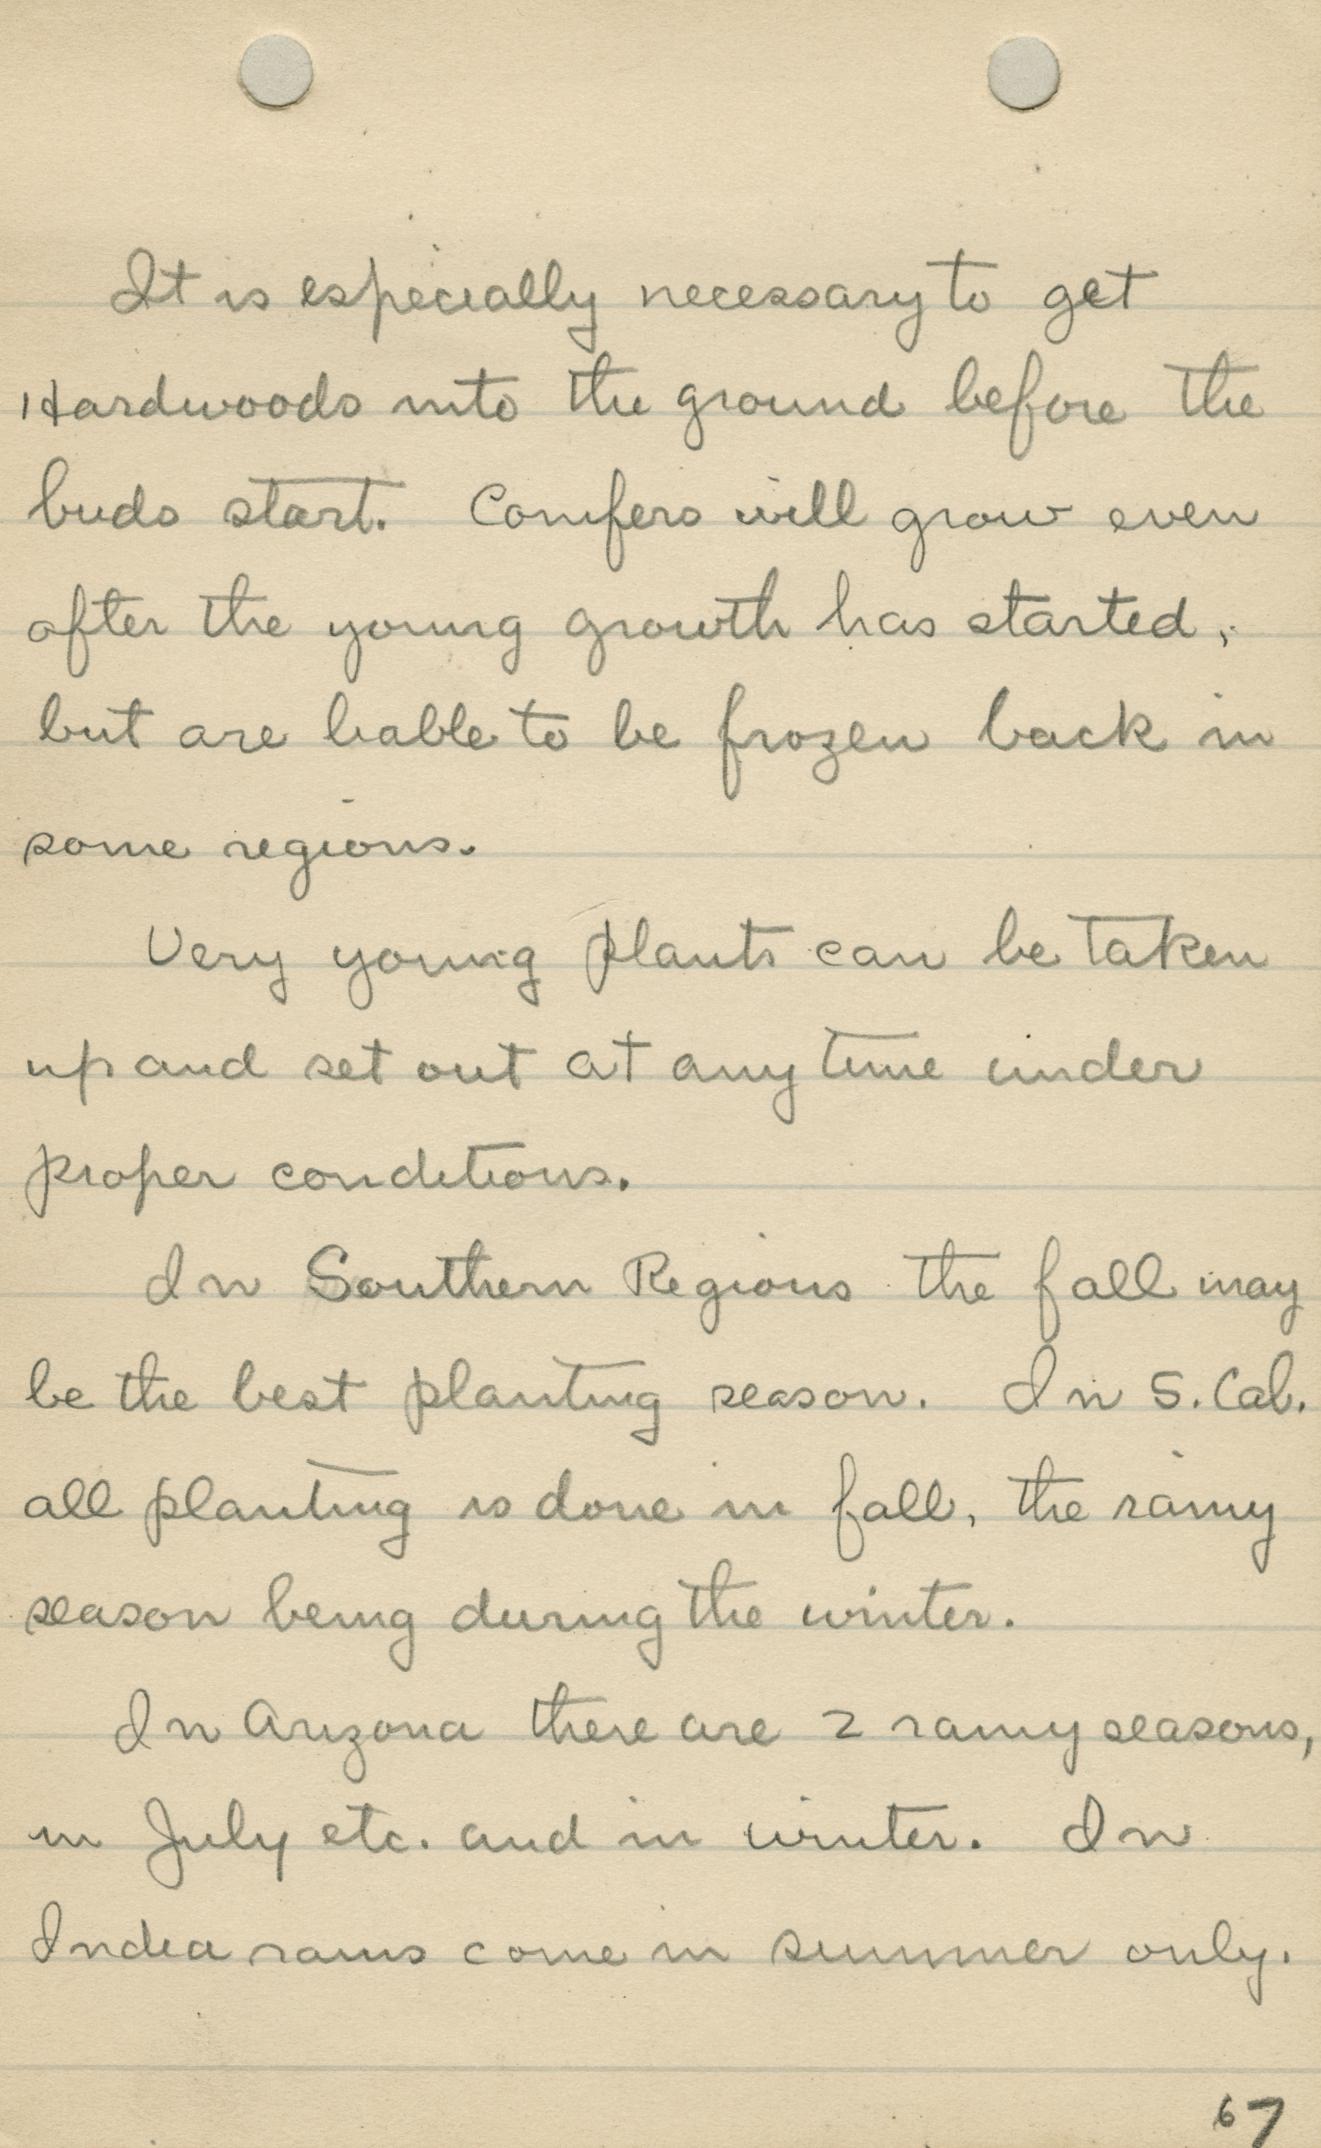 It is especially necessary to get
Hardwoods into the ground before the
buds start. Conifers will grow even
after the young growth has started,
but are liable to be frozen back in
some regions.
Very young plants can be taken
up and set out at any time under
proper conditions.
In Southern Regions the fall may
be the best planting season. In S. Cal.
all planting is done in fall, the rainy
season being during the winter.
In Arizona there are 2 rainy seasons,
in July etc. and in winter. In
India rains come in summer only.
67